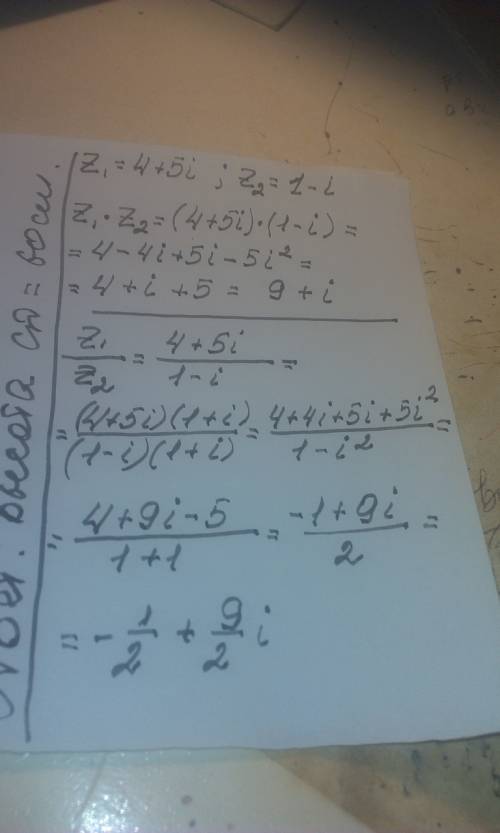 Z₁ = 4+5i ; Z₂ = 1-i
Z₁·Z₂ = (4+5i)·(1-i) =
= 4-4i+5i-5i² =
= 4+i+5 = 9+i
Z₁/Z₂ = (4+5i)/(1-i) =
= (4+5i)(1+i)/(1-i)(1+i) = (4+4i+5i+5i²)/(1-i²) =
= (4+9i-5)/(1+1) = (-1+9i)/2 =
= -1/2 + 9/2 i
высота СД = 60 см.